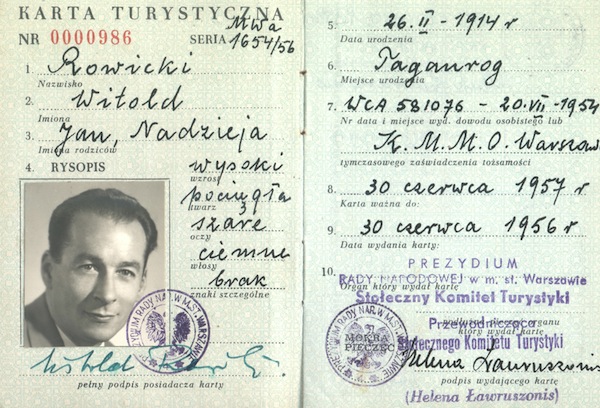 KARTA TURYSTYCZNA
NR 0000986
SERIA MWa 1654/56
1. Rowicki
Nazwisko
2. Witold
Imiona
3. Jan, Nadzieja
Imiona rodziców
4. RYSOPIS
wysoki
wzrost
pociągła
twarz
szare
oczy
ciemne
włosy
brak
znaki szczególne
PREZYDIUM RADY NAR. W M. ST. WARSZAWIE
Witold
pełny podpis posiadacza karty
5. 26. II - 1914 r
Data urodzenia
6. Taganrog
Miejsce urodzenia
7. WCA 581076 - 20. VII - 1954
Nr data i miejsce wyd. dowodu osobistego lub
K. M. M. O. Warszawa
tymczasowego zaświadczenia tożsamości
8. 30 czerwca 1957 r
Karta ważna do:
9. 30 czerwca 1956 r
Data wydania karty:
PREZYDIUM
10. RADY NARODOWEJ w m. st. Warszawie
Organ który wydał kartę
Stołeczny Komitet Turystyki
organu
który wydał kartę
Przewodnicząca
Stołecznego Komitetu Turystyki
MOKRA PIECZĘĆ
Helena Ławruszonis
podpis wydającego kartę
(Helena Ławruszonis)